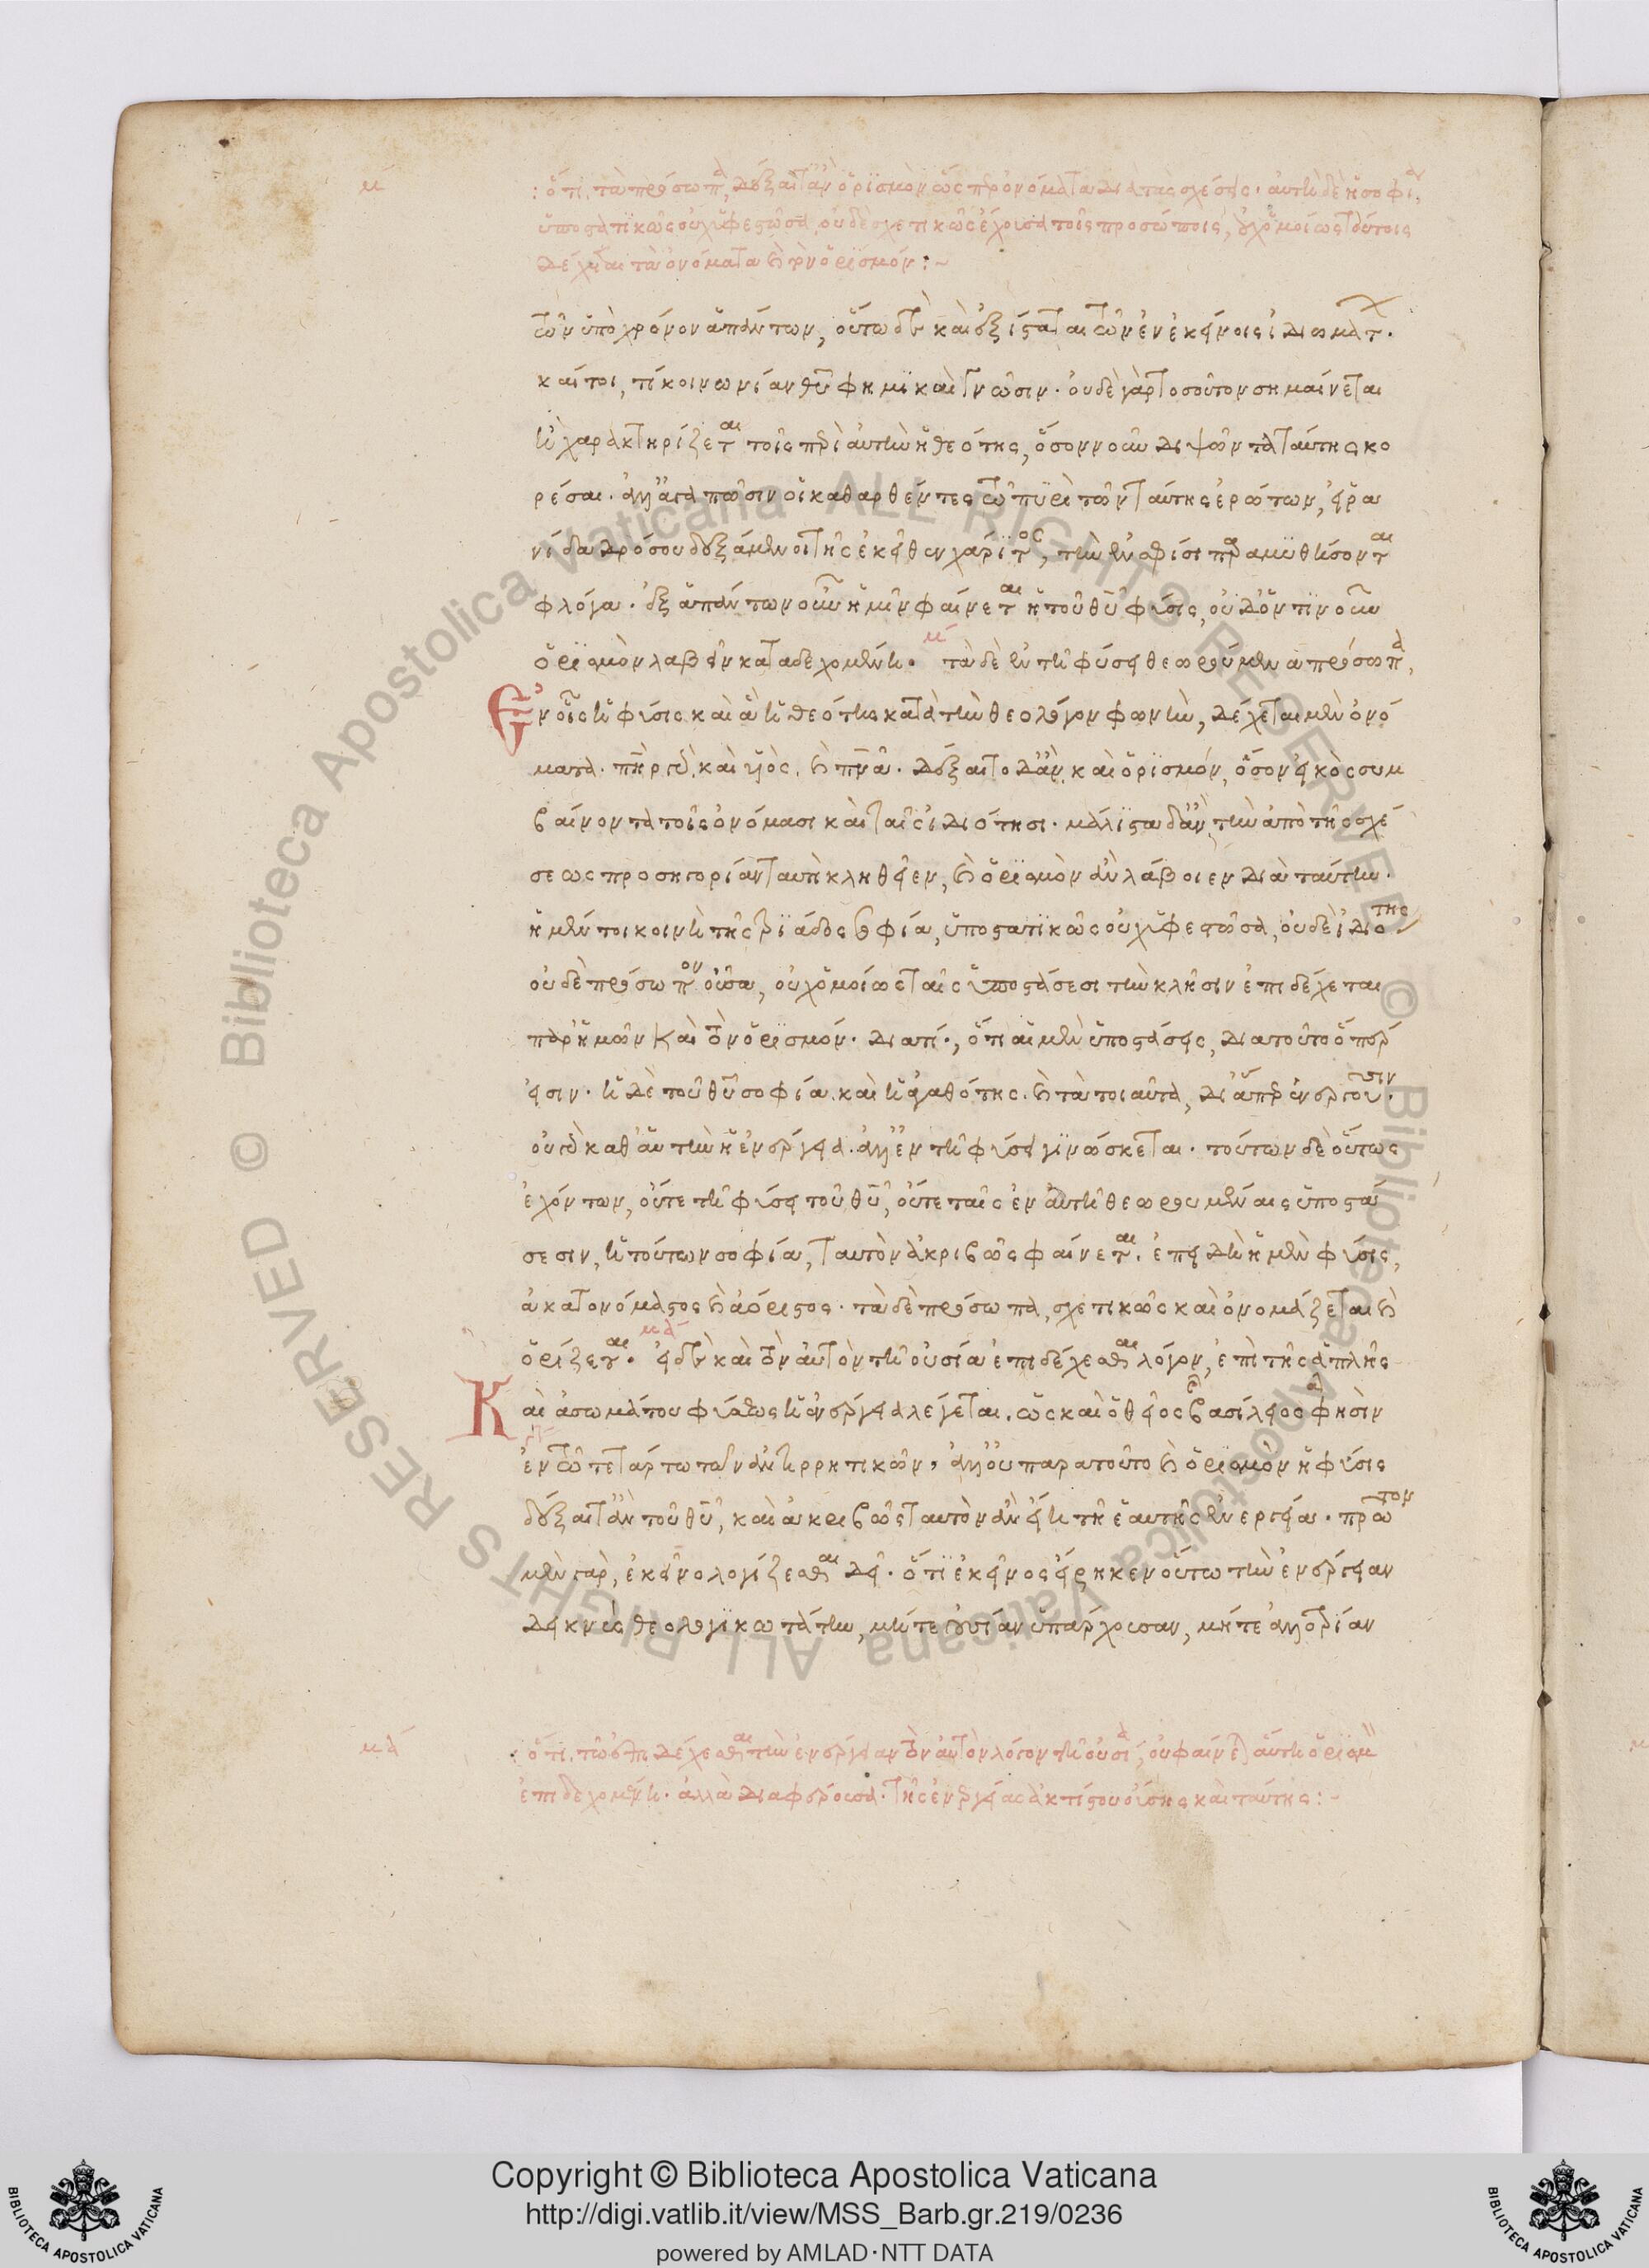 μ΄ : ὅτι τὰ πρόσωπα, δέξαιτ' ἂν ὁρισμὸν ὡς πρὸς ὀνόματα διὰ τὰς σχέσεις· αὐτὴ δὲ ἡ σοφία
ὑποστατικῶς οὐχ ὑφεστῶσα, οὐδὲ σχετικῶς ἔχουσα τοῖς προσώποις, οὐχ ὁμοίως τούτοις
δέχεται τὰ ὀνόματα καὶ τὸν ὁρισμόν :~
τῶν ὑπὸ χρόνον ἁπάντων, οὕτω δὴ καὶ ἐξίσταται τῶν ἐν ἐκείνοις ἰδιωμάτ.
καίτοι, τί κοινωνίαν θεοῦ φημὶ καὶ γνῶσιν· οὐδὲ γὰρ τοσοῦτον σημαίνεται
ἢ χαρακτηρίζεται τοῖς περὶ αὐτὴν ἡ θεότης, ὅσον νοῦν διψῶντα ταύτης κο
ρέσαι· ἀλλ' ἀγαπῶσιν οἱ καθαρθέντες τῷ πυρὶ τῶν ταύτης ἐρώτων, εἰ ρα
νίδα δρόσου δεξάμενοι τῆς ἐκεῖθεν χάριτος, τὴν παραμυθήσονται
φλόγα· ἐξ ἁπάντων οὖν ἡμῖν φαίνεται ἡ τοῦ θεοῦ φύσις, οὐδ' ὁντινοῦν
ὁρισμὸν λαβεῖν καταδεχομένη· μ΄ τὰ δὲ ἐν τῇ φύσει θεωρούμενα πρόσωπα,
Ἐν οἷς ἡ φύσις καὶ ἃ ἡ θεότης κατὰ τὴν θεολόγον φωνὴν, δέχεται μὲν ὀνό
ματα· πηρ καὶ ὑιὸς καὶ πνα· δέξαιτο δ' ἂν καὶ ὁρισμόν, ὅσον εἰκὸς συμ
βαίνοντα τοῖς ὀνόμασι καὶ ταῖς ἰδιότησι· μάλιστα δ' ἂν τὴν ἀπὸ τῆς σχέ
σεως προσηγορίαν ταύτη κληθεῖεν, καὶ ὁρισμὸν ἀναλάβοιεν διὰ ταύτην·
ἡ μέντοι κοινὴ τῆς τριάδος σοφία, ὑποστατικῶς οὐχ ὑφεστῶσα, οὐδὲ ἰδιότης
οὐδὲ πρόσωπον οὖσα, οὐχ ὁμοίως ταῖς ὑποστάσεσι τὴν κλῆσιν ἐπιδέχεται
παρ' ἡμῶν καὶ τὸν ὁρισμόν· διατί·, ὅτι αἱ μὲν ὑποστάσεις, διὰ τοῦτο ὅπερ
εἰσιν· ἡ δὲ τοῦ θεοῦ σοφία καὶ ἡ ἀγαθότης καὶ τὰ τοιαῦτα, δι' ἅπερ ἐνεργοῦσιν·
οὐ γὰρ καθ' αὑτὴν ἡ ἐνέργεια ἀλλ' ἐν τῇ φύσει γινώσκεται· τούτων δὲ οὕτως
ἐχόντων, οὔτε τῇ φύσει τοῦ θεοῦ, οὔτε ταῖς ἐν αὐτῇ θεωρουμέναις ὑποστά
σεσιν, ἡ τούτων σοφία, ταυτὸν ἀκριβῶς φαίνεται· ἐπειδὴ ἡ μὲν φύσις,
ἀκατονόμαστος καὶ ἀόριστος· τὰ δὲ πρόσωπα, σχετικῶς καὶ ὀνομάζεται καὶ
ὁρίζεται· μα΄ εἰ δὴ καὶ τὸν αὐτὸν τῇ οὐσίᾳ ἐπιδέχεσθαι λόγον, ἐπὶ τῆς ἁπλῆς
Καὶ ἀσωμάτου φύσεως ἡ ἐνέργεια λέγεται, ὡς καὶ ὁ θεῖος βασίλειος φησὶν
ἐν τῷ τετάρτῳ τῶν ἀντιρρητικῶν, ἀλλ' οὐ παρὰ τοῦτο καὶ ὁρισμὸν ἡ φύσις
δέξαιτ' ἂν τοῦ θεοῦ, καὶ ἀκριβῶς ταυτὸν ἂν εἴη τῇ ἑαυτῆς ἐνεργείᾳ· πρῶτον
μὲν γὰρ, ἐκεῖνο λογίζεσθαι δεῖ· ὅτι ἐκεῖνος εἴρηκεν οὕτω τὴν ἐνέργειαν
δεικνὺς θεολογικωτάτην, μήτε οὐσίαν ὑπάρχουσαν, μήτε ἀλλοτρίαν
μα΄ : ὅτι τῷ ἐπιδέχεσθαι τὴν ἐνέργειαν τὸν αὐτὸν λόγον τῇ οὐσίᾳ, οὐ φαίνεται αὕτη ὁρισμὸν
ἐπιδεχομένη· ἀλλὰ διαφέρουσα τῆς ἐνεργείας ἀκτίστου οὔσης καὶ ταύτης :~
© Biblioteca Apostolica Vaticana ALL RIGHTS RESERVED
© Biblioteca Apostolica Vaticana ALL RIGHTS RESERVED
BIBLIOTECA APOSTOLICA VATICANA
Copyright © Biblioteca Apostolica Vaticana
http://digi.vatlib.it/view/MSS_Barb.gr.219/0236
powered by AMLAD·NTT DATA
BIBLIOTECA APOSTOLICA VATICANA